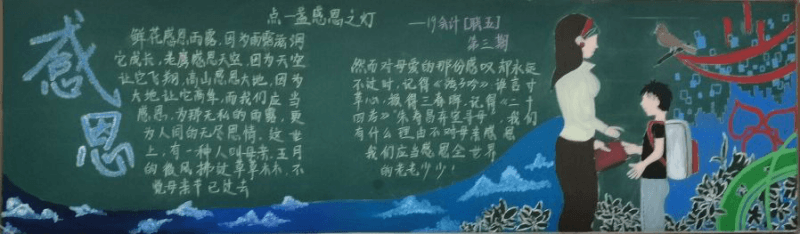 感恩
点一盏感恩之灯
——19会计[联五]
第三期
鲜花感恩雨露,因为雨露滋润
它成长,老鹰感恩天空,因为天空
让它飞翔,高山感恩大地,因为
大地让它高耸,而我们应当
感恩,为那无私的雨露,更
为人间的无尽恩情。这世
上,有一种人叫母亲,五月
的微风拂过草草木木,不
觉母亲节已过去
然而对母爱的那份感叹却永远
不过时,记得《游子吟》谁言寸
草心,报得三春晖,记得《二十
四孝》朱寿昌弃官寻母,我们
有什么理由不对母亲感恩
我们应当感恩全世界
的老老少少!